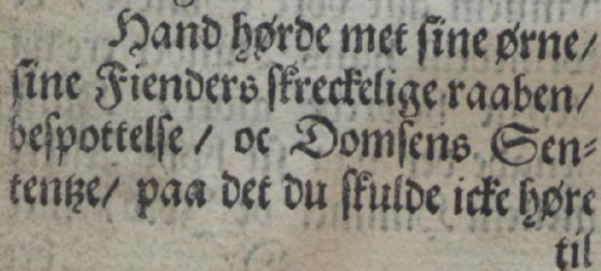 Hand hørde met sine ørne/
sine Fienders skreckelige raaben/
bespottelse / oc Domsens Sen⸗
tentze/ paa det du skulde icke høre
til